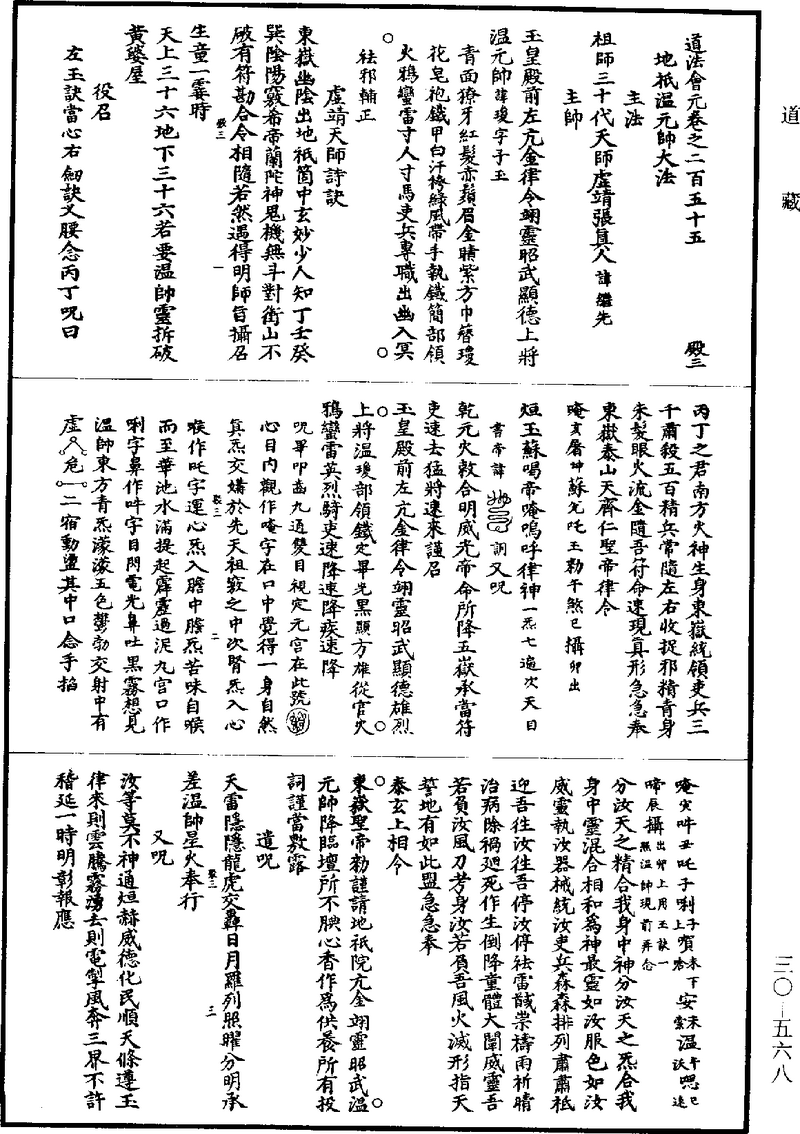 道藏
三〇—五六八
道法會元卷之二百五十五 殿三
地祇溫元帥大法
主法
祖師三十代天師虛靖張真人諱繼先
主帥
玉皇殿前左亢金律令翊靈昭武顯德上將
溫元帥諱瓊字子玉
青面獠牙紅髮赤鬚眉金睛紫方巾簪瓊
花皂袍鐵甲白汗袴綠風帶手執鐵簡部領
火鴉蠻雷寸人寸馬吏兵專職出幽入冥
祛邪輔正
虛靖天師詩訣
東嶽幽陰出地祇箇中玄妙少人知丁壬癸
巽陰陽竅希帝蘭陀神鬼機無斗對銜山不
破有符勘合令相隨若然遇得明師旨攝召
生童一霎時
天上三十六地下三十六若要溫帥靈拆破
黃婆屋
役召
左玉訣當心右劒訣叉腰念丙丁呪曰
丙丁之君南方火神生身東嶽統領吏兵三
千肅殺五百精兵常隨左右收捉邪精青身
朱髮眼火流金隨吾符命速現真形急急奉
東嶽泰山天齊仁聖帝律令
唵亥屠坤蘇戈吒玉勒午煞巳攝卯出
烜玉蘇喝帝唵嗚呼律神一炁七遍次天目
書帝諱 地 詞又呪
乾元火敕合明威光帝命所降五嶽承當符
吏速去猛將速來謹召
玉皇殿前左亢金律令翊靈昭武顯德雄烈
上將溫瓊部領鐵定畢光黑顯方雄從官火
鴉蠻雷英烈騎吏速降速降疾速降
呪畢叩齒九通雙目視定元宮在此號
心目內觀作唵字在口中覺得一身自然
真炁交媾於先天祖竅之中次腎炁入心
喉作吒字運心炁入膽中膽炁苦味自喉
而至華池水滿提起霹靂過泥丸宮口作
唎字鼻作吽字目閃電光鼻吐黑霧想見
溫帥東方青炁濛濛五色鬱勃交射中有
虛危二宿動盪其中口念手掐
唵寅吽丑吒子唎子上噴未下安未溫午嗯巳
啼辰攝出卯上用玉訣一
煞溫帥現前再念
分汝天之精合我身中神分汝天之炁合我
身中靈混合相和為神最靈如汝服色如汝
威靈執汝器械統汝吏兵森森排列肅肅祗
迎吾往汝往吾停汝停祛雷馘祟禱雨祈晴
治病除禍廻死作生倒降童體大闡威靈吾
若負汝風刀考身汝若負吾風火滅形指天
誓地有如此盟急急奉
泰玄上相令
東嶽聖帝勅謹請地祇院亢金翊靈昭武溫
元帥降臨壇所不腆心香作為供養所有投
詞謹當敷露
遣呪
天雷隱隱龍虎交轟日月羅列照曜分明承
差溫帥星火奉行
又呪
汝等莫不神通烜赫威德化民順天條遵玉
律來則雲騰霧湧去則電掣風奔三界不許
稽延一時明彰報應